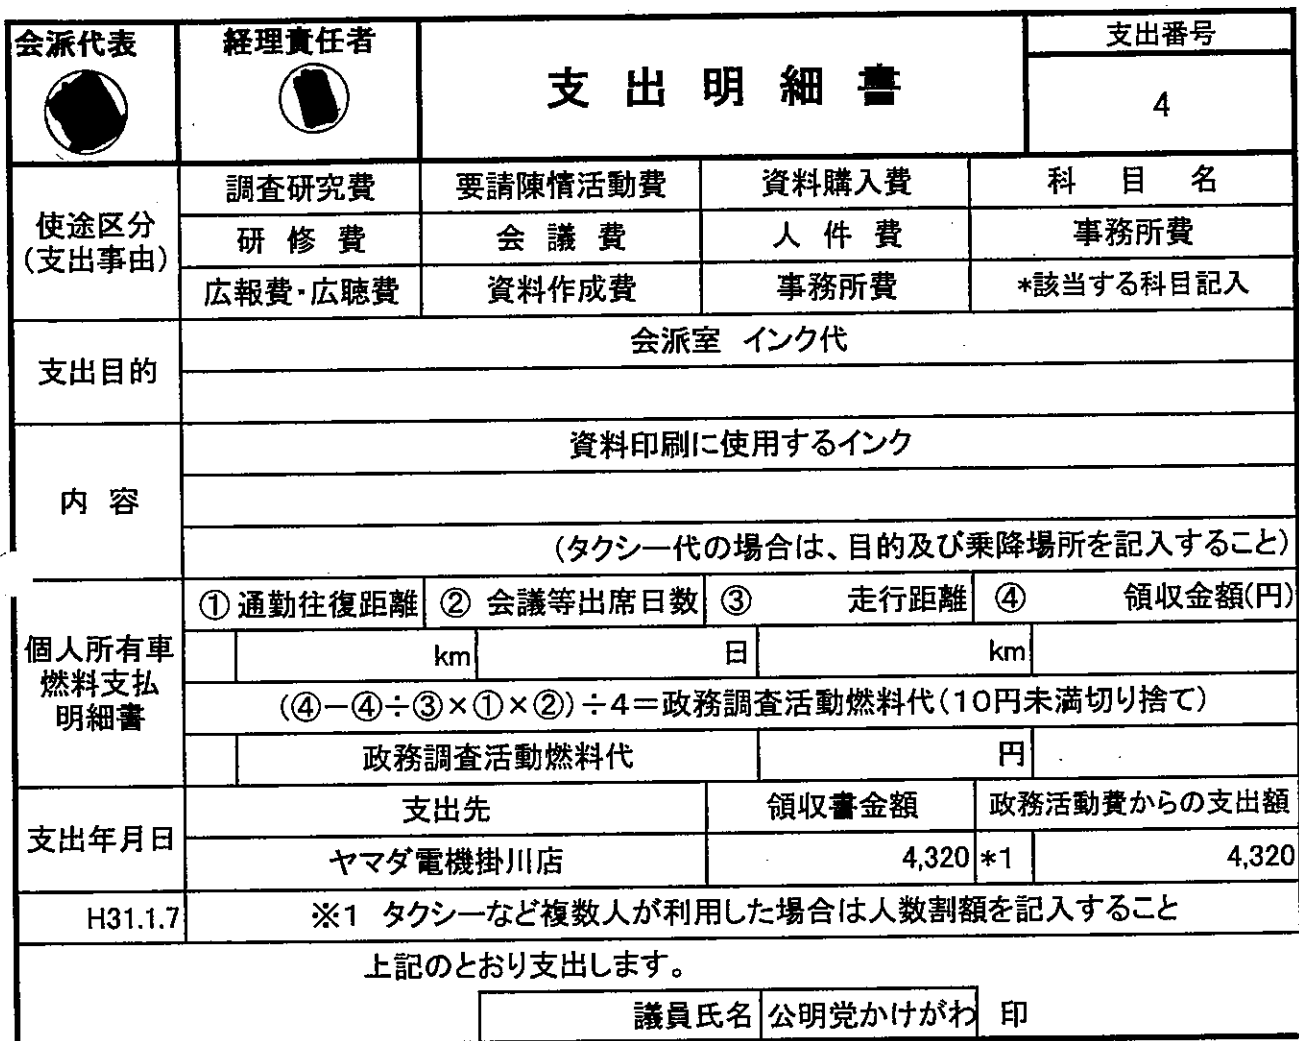 会派代表 経理責任者 支出明細書 支出番号
4
使途区分
(支出事由)
調査研究費 要請陳情活動費 資料購入費 科目名
研修費 会議費 人件費 事務所費
広報費・広聴費 資料作成費 事務所費 *該当する科目記入
支出目的
会派室 インク代
内容
資料印刷に使用するインク
(タクシー代の場合は、目的及び乗降場所を記入すること)
個人所有車
燃料支払
明細書
①通勤往復距離 ② 会議等出席日数 ③ 走行距離 ④ 領収金額(円)
km 日 km
(④-④÷③×①×②)÷4=政務調査活動燃料代(10円未満切り捨て)
政務調査活動燃料代 円
支出年月日
支出先 領収書金額 政務活動費からの支出額
ヤマダ電機掛川店 4,320 *1 4,320
H31.1.7 ※1 タクシーなど複数人が利用した場合は人数割額を記入すること
上記のとおり支出します。
議員氏名 公明党かけがわ 印